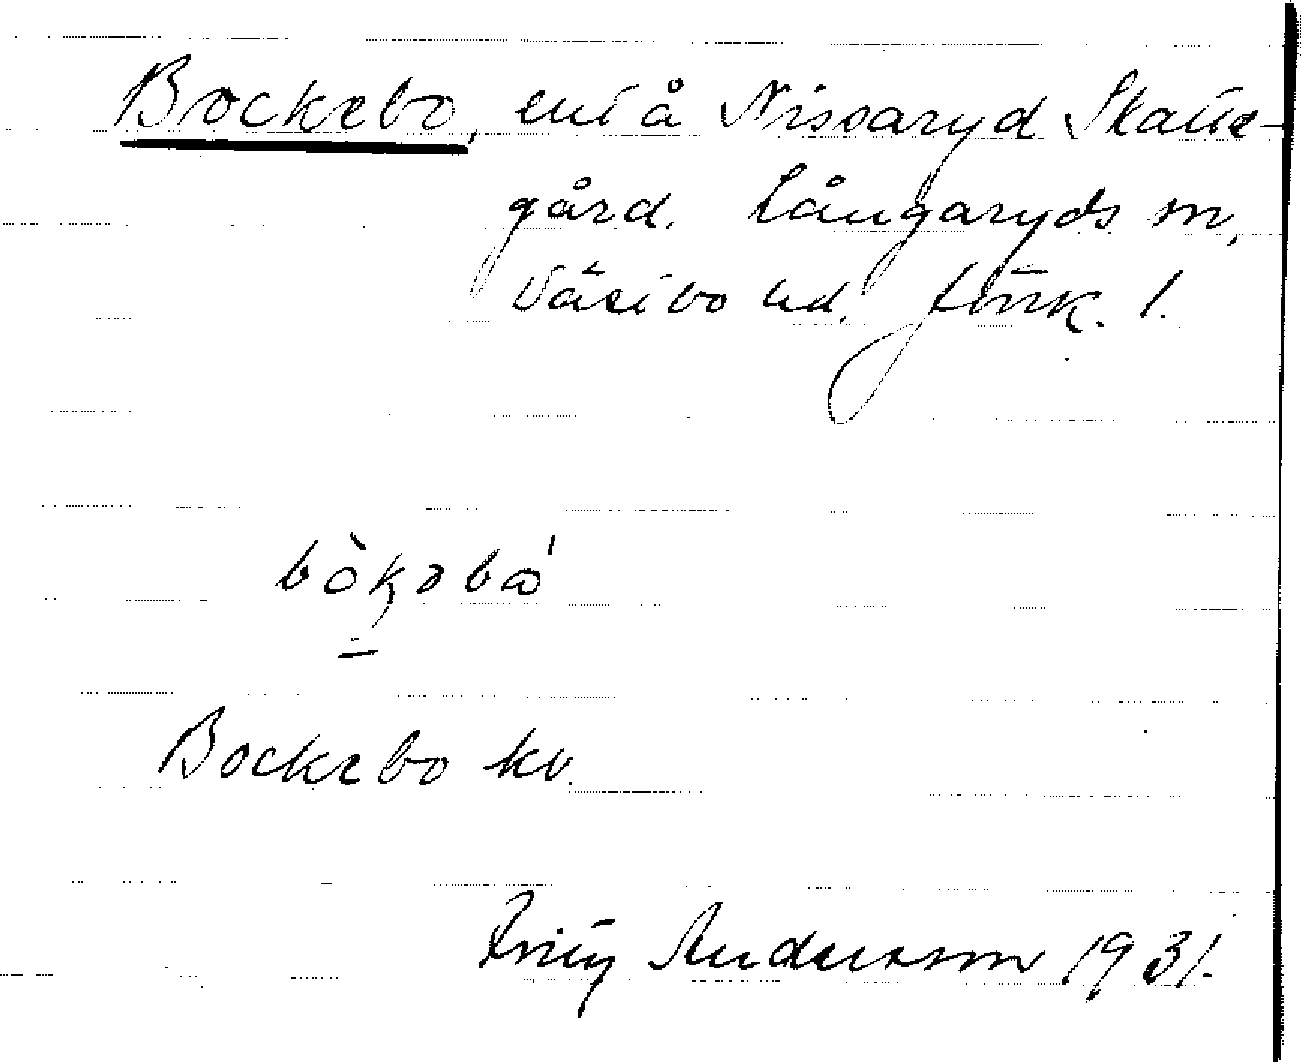 Bockebo, ent å Nissaryd Skatte-
gård. Långaryds sn,
Västbo hd. Jönk. l.
bòkəbo̍
Bockebo kv.
Fritz Andersson 1931.